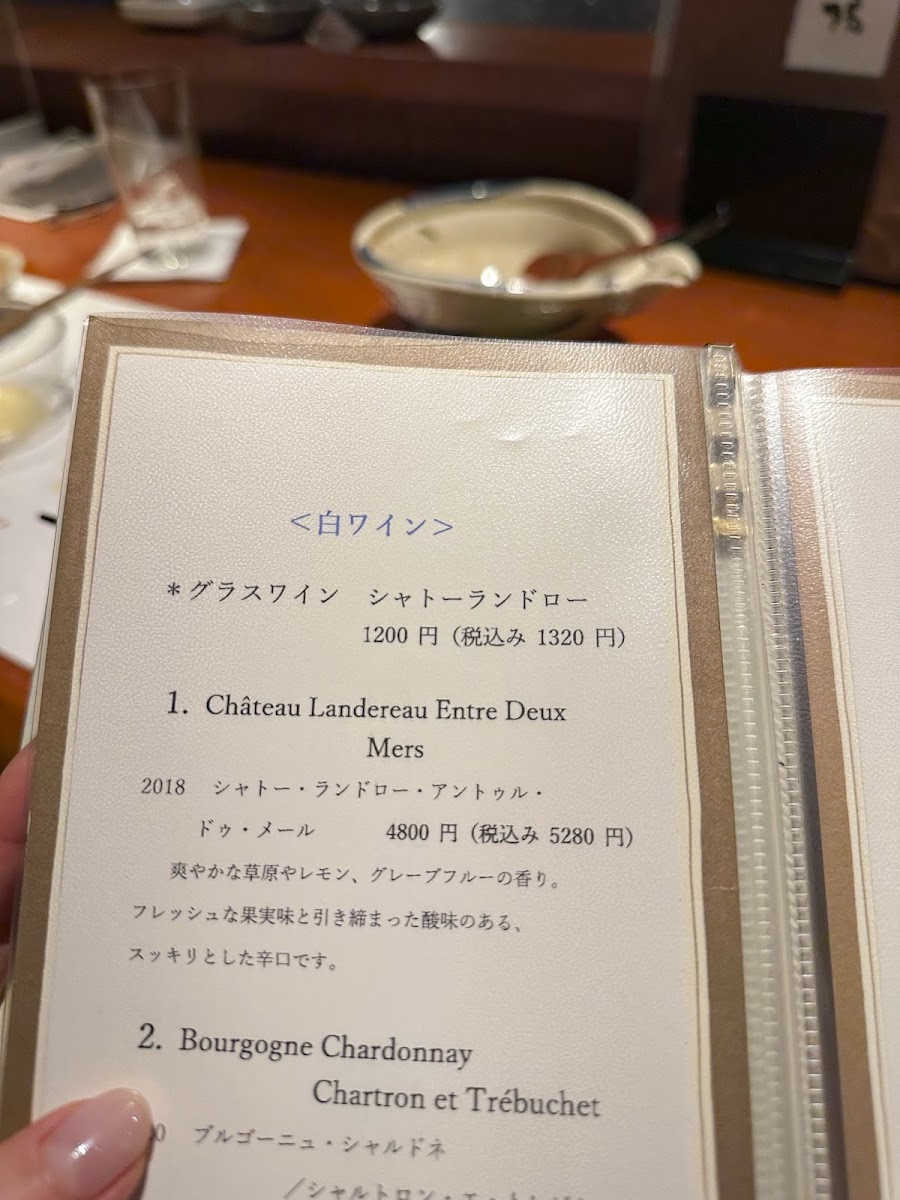 <白ワイン>
*グラスワイン シャトーランドロー
1200 円（税込み 1320 円）
1. Château Landereau Entre Deux
Mers
2018 シャトー・ランドロー・アントゥル・
ドゥ・メール 4800 円（税込み 5280 円）
爽やかな草原やレモン、グレープフルーの香り。
フレッシュな果実味と引き締まった酸味のある、
スッキリとした辛口です。
2. Bourgogne Chardonnay
Chartron et Trébuchet
ブルゴーニュ・シャルドネ
／シャルトロン・エ・